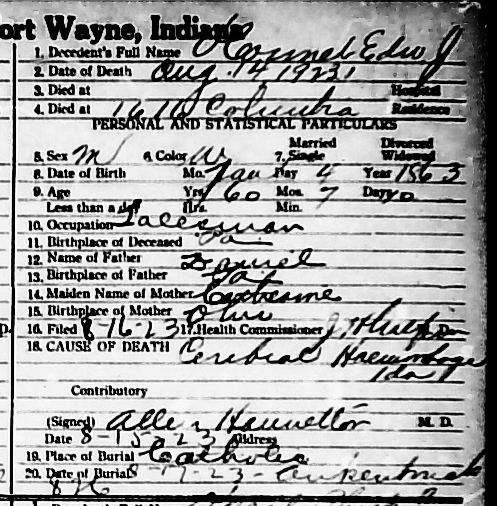 ort Wayne, Indiana
1. Decedent's Full Name Edw J
2. Date of Death Aug. 14 1923
3. Died at Hospital
4. Died at 1616 Columbia Residence
PERSONAL AND STATISTICAL PARTICULARS
Married Divorced
5. Sex M 6. Color W 7. Single Widowed
8. Date of Birth Mo. Jan Day 4 Year 1863
9. Age Yrs. 60 Mos. 7 Days 10
Less than a day Hrs. Min.
10. Occupation Salesman
11. Birthplace of Deceased Pa
12. Name of Father Daniel
13. Birthplace of Father Pa
14. Maiden Name of Mother Catherine
15. Birthplace of Mother Ohio
16. Filed 8-16-23 17. Health Commissioner
18. CAUSE OF DEATH Cerebral Haemorrhage
1da
Contributory
(Signed) Allen Hamilton M. D.
Date 8-15-23 Address
19. Place of Burial Catholic
20. Date of Burial 8-17-23-